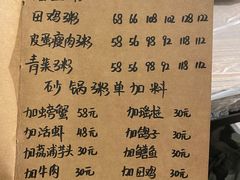 田鸡粥 68 66 98 108 128 112
皮蛋瘦肉粥 58 56 98 92 118 112
青菜粥 58 56 98 92 118 112
砂锅粥单加料
加螃蟹 58元 加瑶柱 30元
加活虾 48元 加鸽子 30元
加荔浦芋头 30元 加鲢鱼 30元
加牛肉 30元 加田鸡 30元